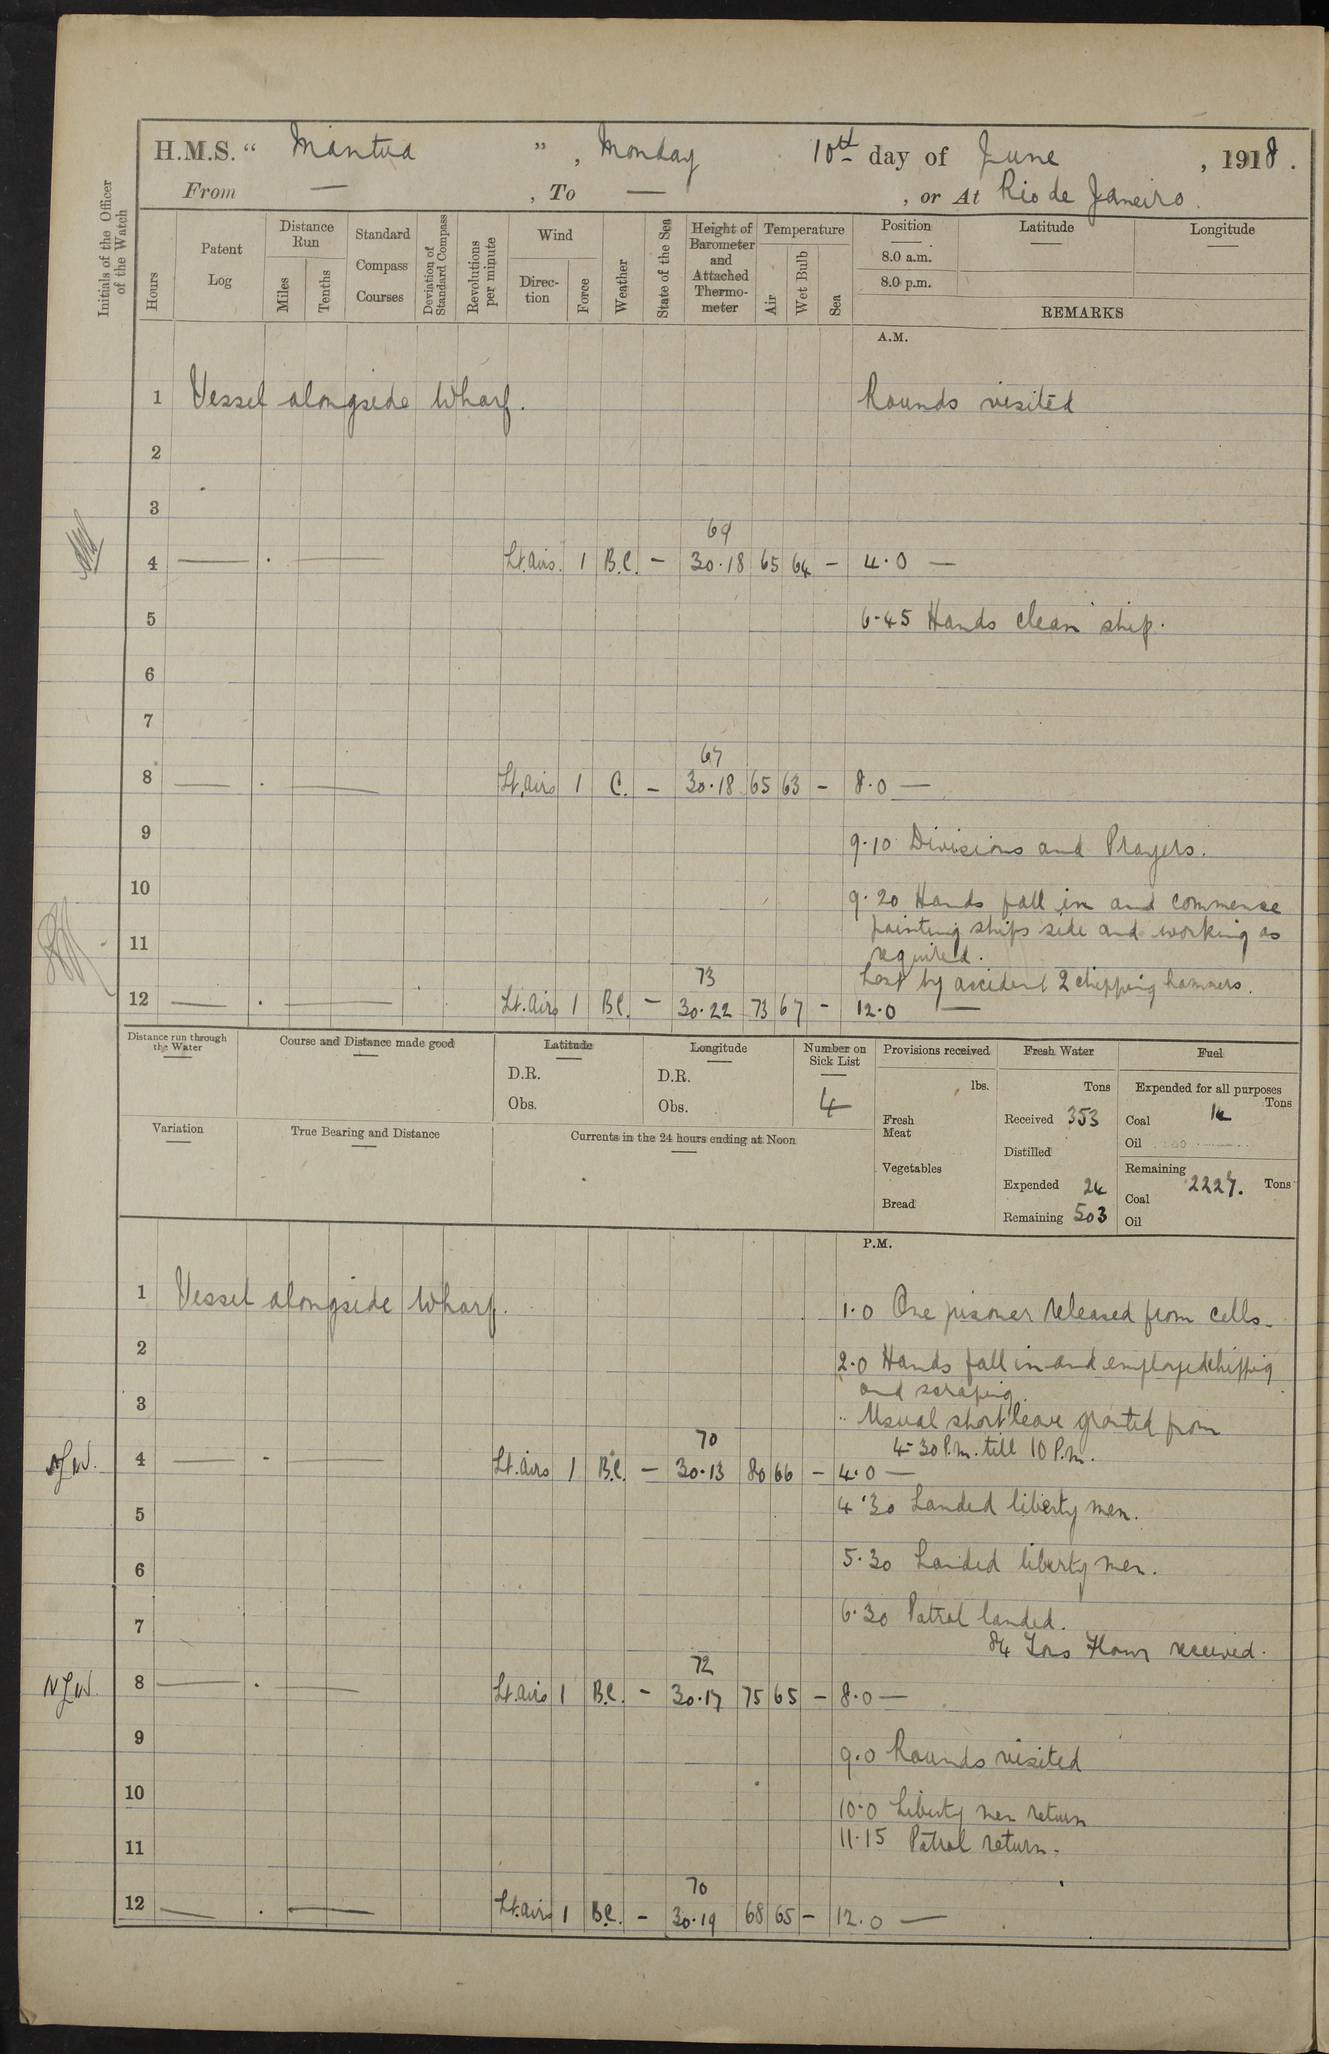 H.M.S. " Mantua " , Monday 10th day of June , 1918 .
From — , To — , or At Rio de Janeiro .
Initials of the Officer of the Watch
Hours
Patent Log
Distance Run
Miles
Tenths
Standard Compass Courses
Deviation of Standard Compass
Revolutions per minute
Wind
Direc-tion
Force
Weather
State of the Sea
Height of Barometer and Attached Thermo-meter
Temperature
Air
Wet Bulb
Sea
Position
8.0 a.m.
8.0 p.m.
Latitude
Longitude
REMARKS
A.M.
1 Vessel alongside Wharf. Rounds visited
2
3
69
4 — . — Lt. airs. 1 B.C. — 30.18 65 64 — 4.0 —
5 6.45 Hands clean ship.
6
7
67
8 — . — Lt. airs 1 C. — 30.18 65 63 — 8.0 —
9 9.10 Divisions and Prayers.
10 9.20 Hands fall in and commence
painting ships side and working as
11 required.
73 Lost by accident 2 chipping hammers.
12 — . — Lt. airs 1 B.C. — 30.22 73 67 — 12.0 —
Distance run through the Water
Course and Distance made good
Latitude
D.R.
Obs.
Longitude
D.R.
Obs.
Number on Sick List
4
Provisions received
lbs.
Fresh Meat
Vegetables
Bread
Fresh Water
Tons
Received 353
Distilled
Expended 24
Remaining 503
Fuel
Expended for all purposes
Tons
Coal 14
Oil
Remaining
Coal 2227. Tons
Oil
Variation
True Bearing and Distance
Currents in the 24 hours ending at Noon
P.M.
1 Vessel alongside Wharf. 1.0 One prisoner released from cells.
2 2.0 Hands fall in and employed chipping
and scraping.
3 .. Usual short leave granted from
70 4-30 P.m. till 10 P.m.
N.J.W. 4 — . — Lt. airs 1 B.C. — 30.13 80 66 — 4.0 —
5 4.30 Landed liberty men.
6 5.30 Landed liberty men.
7 6.30 Patrol landed.
84 Tons Flour received.
72
N.J.W. 8 — . — Lt. airs 1 B.C. — 30.17 75 65 — 8.0 —
9 9.0 Rounds visited
10 10.0 Liberty men return
11 11.15 Patrol return.
70
12 — . — Lt. airs 1 B.C. — 30.19 68 65 — 12.0 —